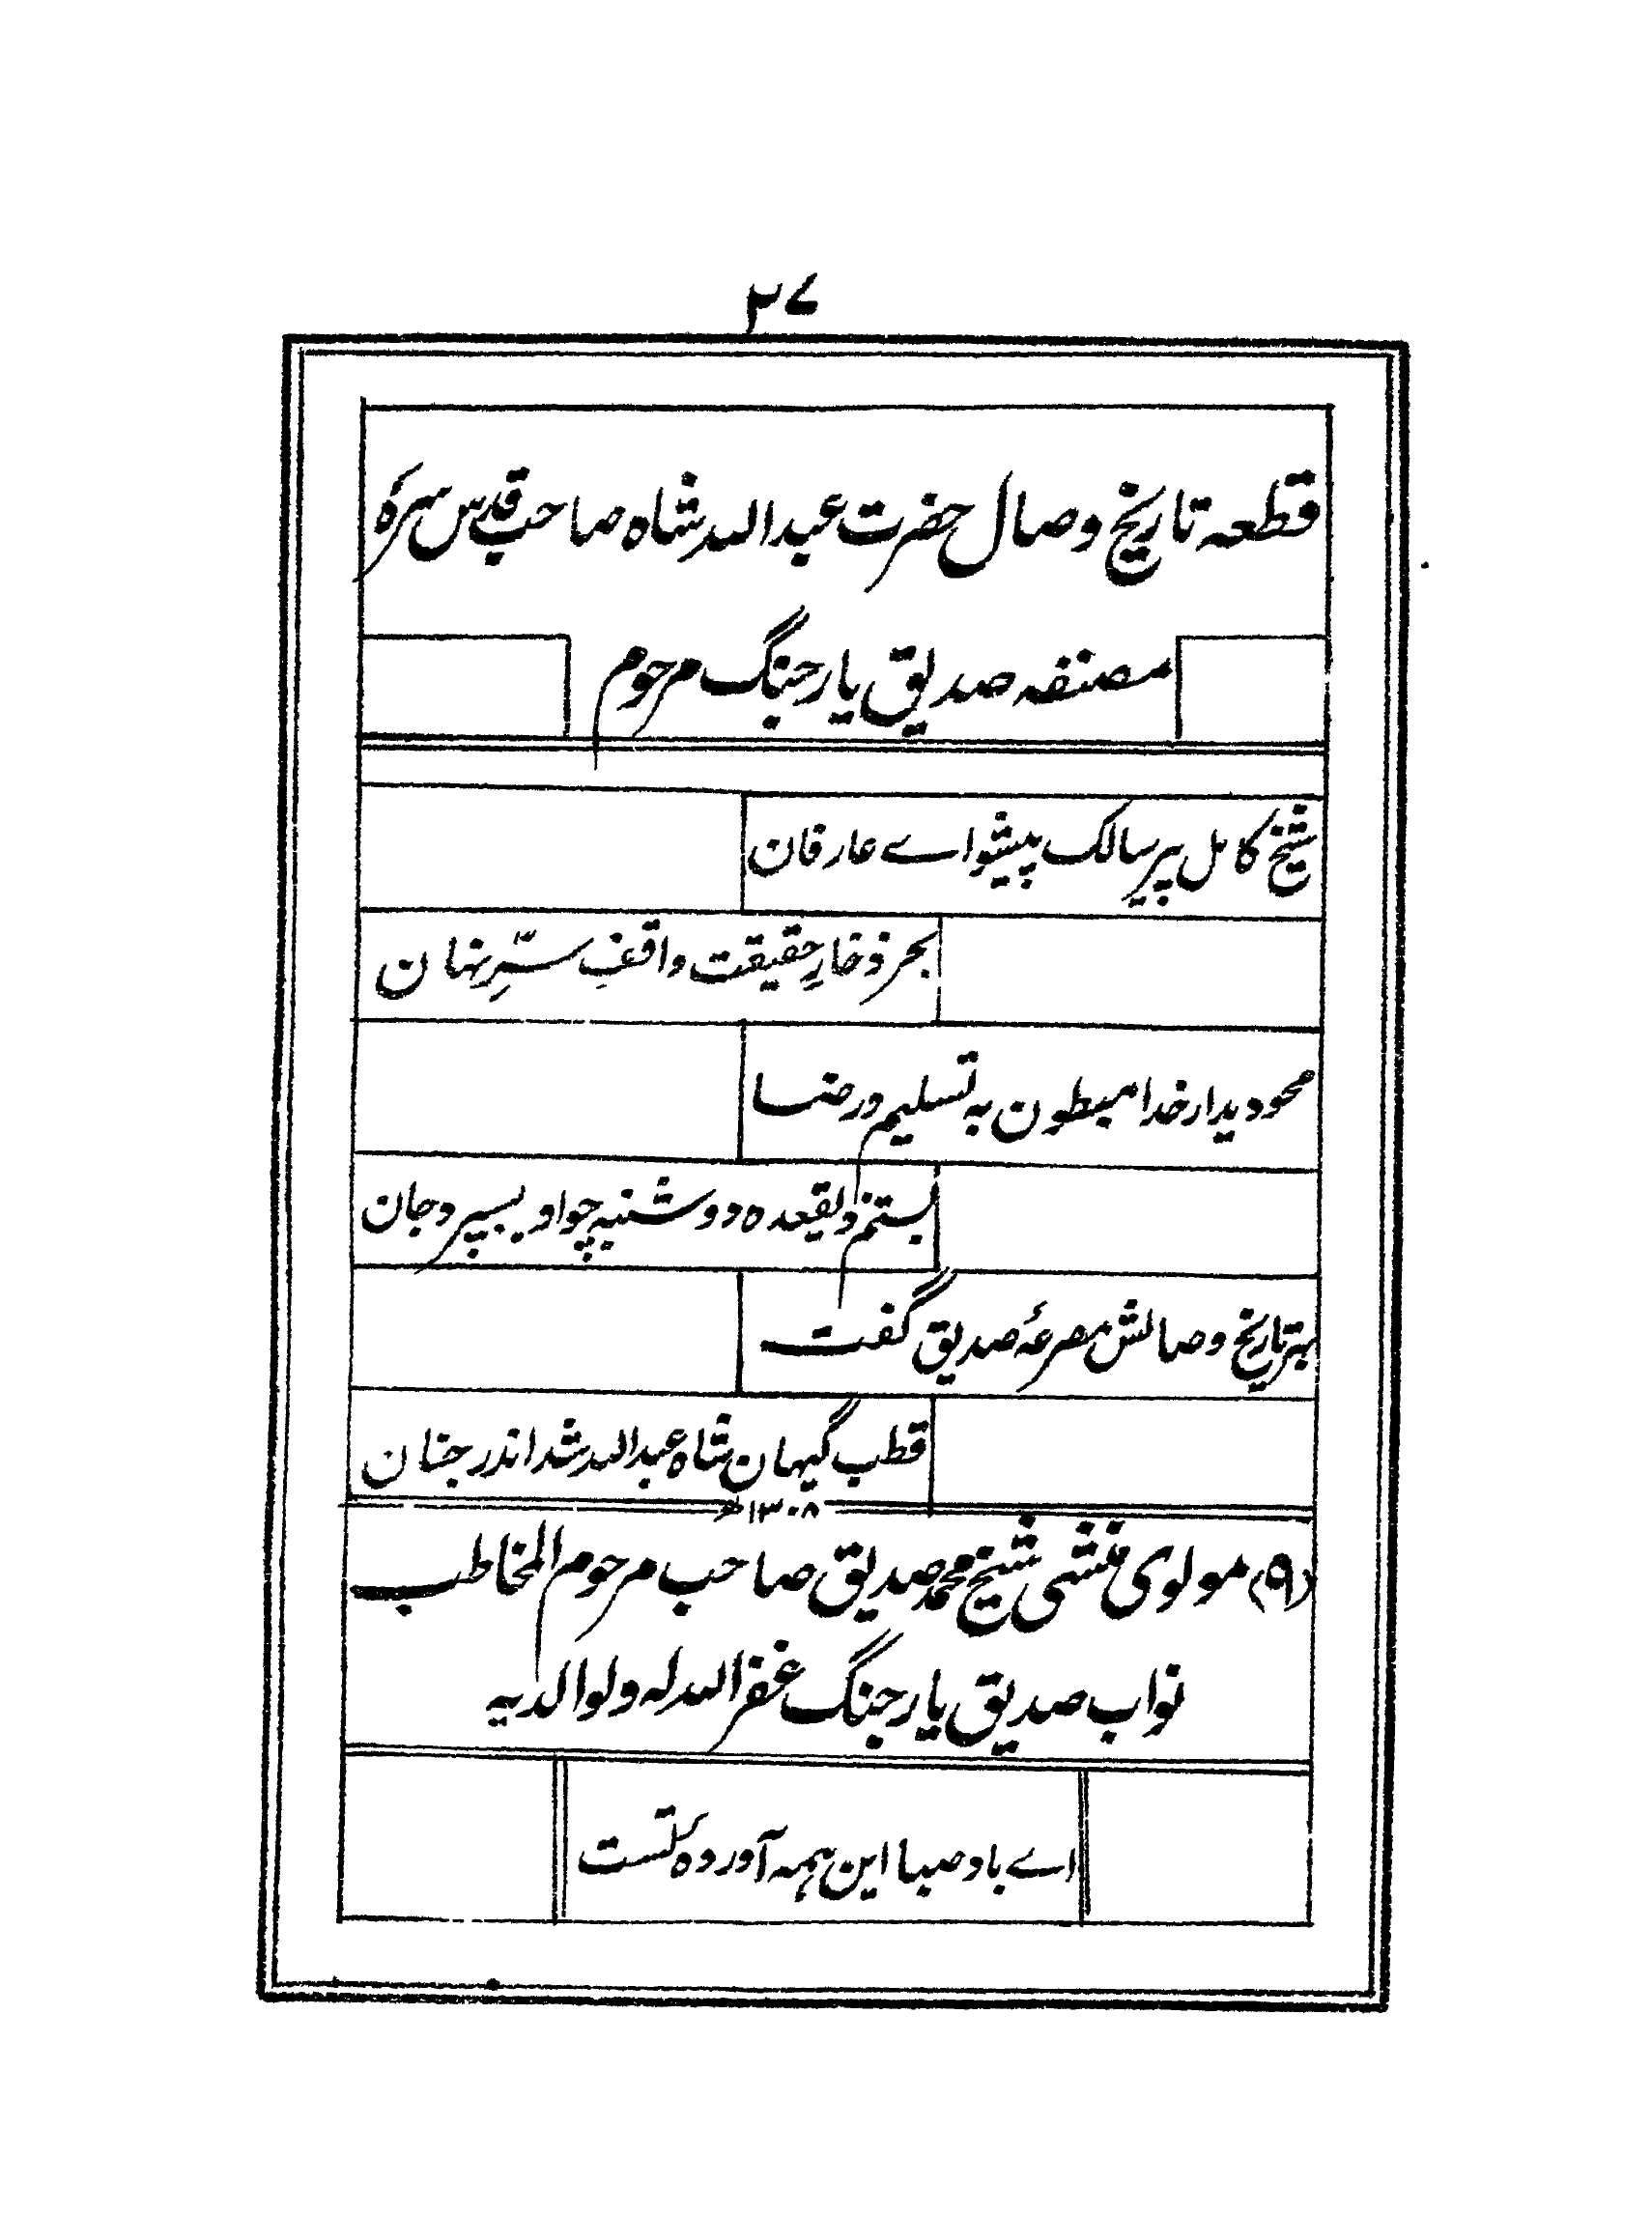 ۲۷
قطعہ تاریخ وصال حضرت عبداللہ شاہ صاحب قدس سرہٗ
مصنفہ صدیق یار جنگ مرحوم
شیخ کامل پیر سالک پیشواے عارفان
بحر ذخارِ حقیقت واقفِ سرِّ نہان
محو دیدار خدا مبطون بہ تسلیم و رضا
بستم ذلیقعدہ دوشنبہ چو او بسپرد جان
بہر تاریخ وصالش مصرعۂ صدیق گفت
قطب گیہان شاہ عبداللہ شد اندر جنان
۱۳۰۸ھ
(۹) مولوی منشی شیخ محمد صدیق صاحب مرحوم المخاطب
نواب صدیق یار جنگ غفر اللہ لہ ولوالدیہ
اے باد صبا این ہمہ آوردہ تست